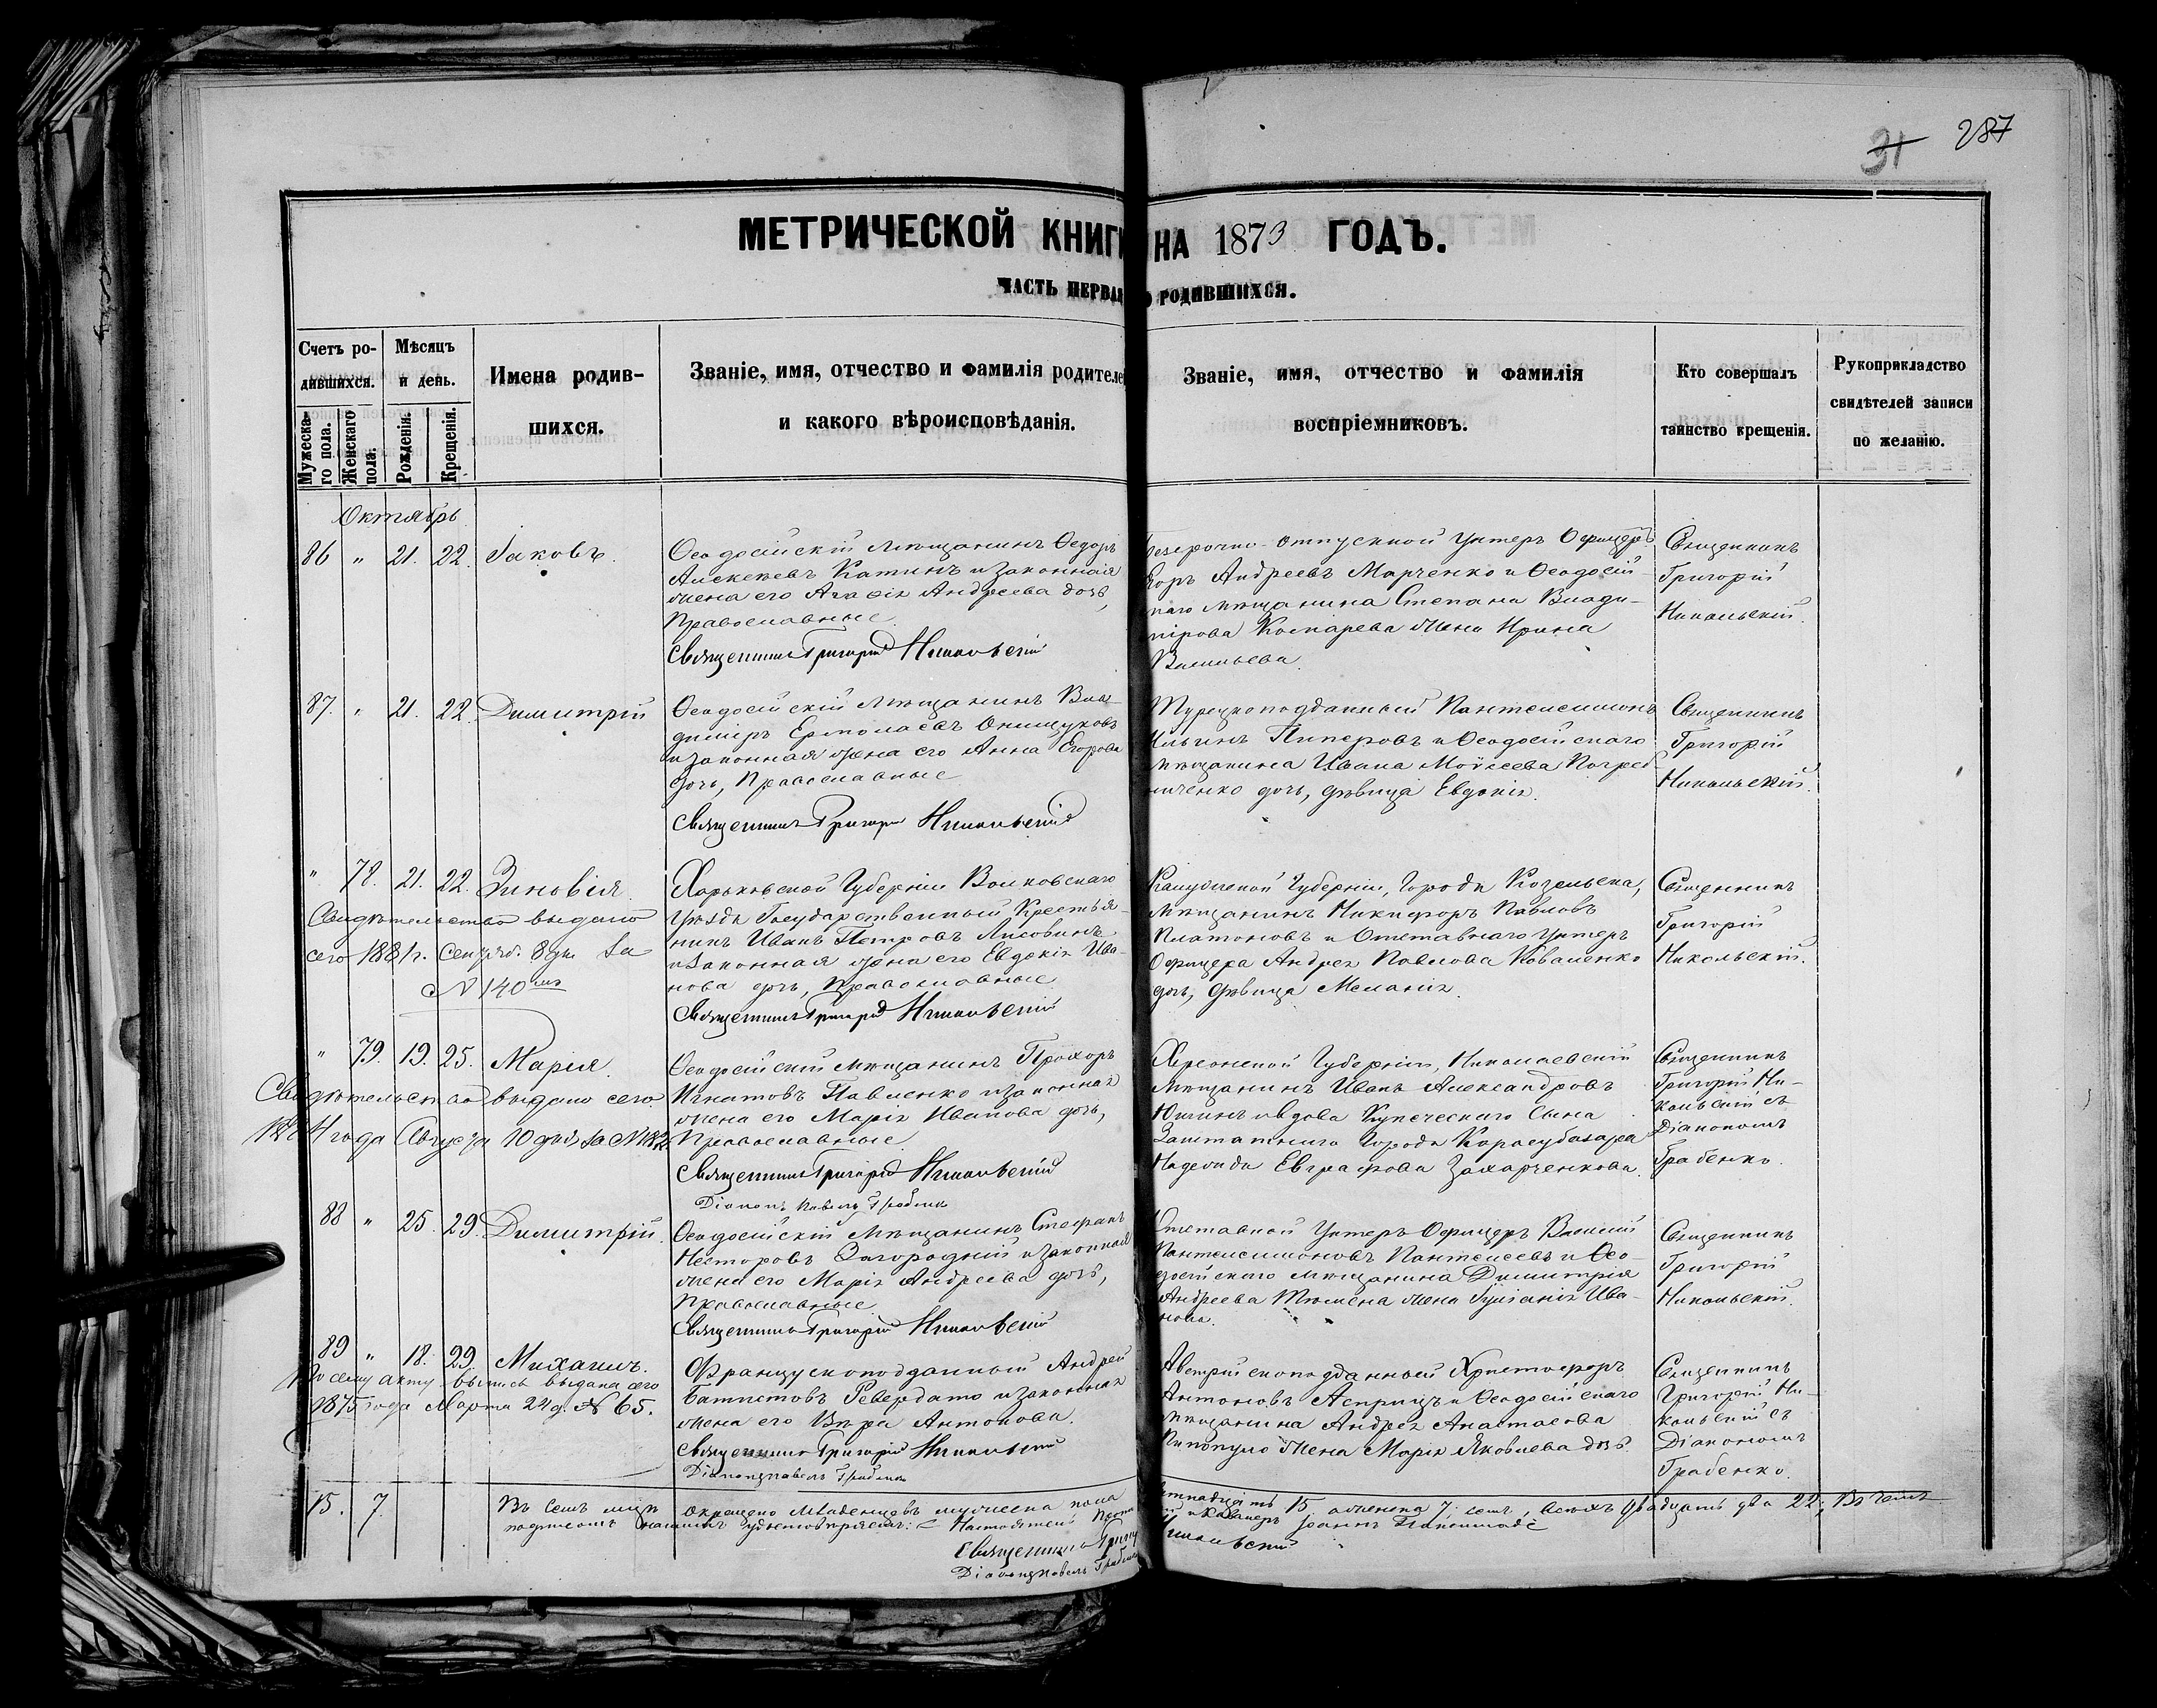 31 287
МЕТРИЧЕСКОЙ КНИГИ НА 1873 ГОДЪ.
ЧАСТЬ ПЕРВАЯ О РОДИВШИХСЯ.
Счетъ родившихся.
Мужескаго пола.
Женскаго пола.
Мѣсяцъ и день.
Рожденія.
Крещенія.
Имена родившихся.
Званіе, имя, отчество и фамилія родителей
и какого вѣроисповѣданія.
Званіе, имя, отчество и фамилія
воспріемниковъ.
Кто совершалъ
таинство крещенія.
Рукоприкладство
свидѣтелей записи
по желанію.
Октябрь
86 " 21. 22. Іаковъ.
Ѳеодосійскій мѣщанинъ Ѳедоръ
Алексѣевъ Катинъ и законная
жена его Агаѳія Андреева дочь,
Православные.
Священникъ Григорій Никольскій
Безсрочно-отпускной Унтеръ Офицеръ
Андреевъ Марченко и Ѳеодосій-
скаго мѣщанина Степана Влади-
мірова Комарева жена Ирина
Васильева.
Священникъ
Григорій
Никольскій.
87. " 21. 22. Димитрій
Ѳеодосійскій мѣщанинъ Вла-
диміръ Ермолаевъ Онищуковъ
и законная жена его Анна Егорова
дочь, Православные
Священникъ Григорій Никольскій
Турецкоподданный Пантелеимонъ
Ильинъ Пиперовъ и Ѳеодосійскаго
мѣщанина Ивана Моѵсеева Погреб-
ниченко дочь, дѣвица Евдокія.
Священникъ
Григорій
Никольскій.
" 78. 21. 22. Зиновія
Свидѣтельство выдано
сего 1881 г. Сентяб. 8 дня за
№ 140
Харьковской Губерніи Волковскаго
Уѣзда Государственный Крестья-
нинъ Иванъ Петровъ Лисовинъ
и законная жена его Евдокія Ива-
нова дочь, Православные
Священникъ Григорій Никольскій
Калужской Губерніи, города Козельска,
мѣщанинъ Никифоръ Павловъ
Платоновъ и Отставнаго Унтеръ
Офицера Андрея Павлова Коваленко
дочь, дѣвица Меланія.
Священникъ
Григорій
Никольскій.
" 79. 19. 25. Марія.
Свидѣтельство выдано сего
года Августа 10 дня за №
Ѳеодосійскій мѣщанинъ Прохоръ
Игнатовъ Павленко и законная
жена его Марія Иванова дочь,
Православные
Священникъ Григорій Никольскій
Діаконъ Павелъ Грабенко
Херсонской Губерніи, Николаевскій
мѣщанинъ Иванъ Александровъ
Юшинъ и вдова Купеческаго сына
Заштатнаго города Карасубазара
Надежда Евграфова Захарченкова.
Священникъ
Григорій Ни-
кольскій съ
Діакономъ
Грабенко.
88 " 25. 29. Димитрій.
Ѳеодосійскій мѣщанинъ Стефанъ
Несторовъ Загородній и законная
жена его Марія Андреева дочь,
Православные
Священникъ Григорій Никольскій
Отставной Унтеръ Офицеръ Василій
Пантелеимоновъ Пантелеевъ и Ѳео-
досійскаго мѣщанина Димитрія
Андреева Тюмена жена Іуліанія Ива-
нова.
Священникъ
Григорій
Никольскій.
89 " 18. 29. Михаилъ.
По сему акту выпись выдана сего
1875 года Марта 22 д. № 65.
Французскоподданный Андрей
Батистовъ Ревердато и законная
жена его Вѣра Антонова.
Священникъ Григорій Никольскій
Діаконъ Павелъ Грабенко
Австрійскоподданный Христофоръ
Антоновъ Асприцъ и Ѳеодосійскаго
мѣщанина Андрея Анастасова
жена Марія Яковлева дочь.
Священникъ
Григорій Ни-
кольскій съ
Діакономъ
Грабенко.
15. 7. Въ семъ мѣсяцѣ окрещено младенцевъ мужеска пола пятнадцать 15 а женска 7 семь, всѣхъ двадцать два 22; въ чемъ
подписомъ нашимъ удостовѣряемъ: Настоятель и Кавалеръ Іоаннъ
Священникъ Григорій Никольскій
Діаконъ Павелъ Грабенко